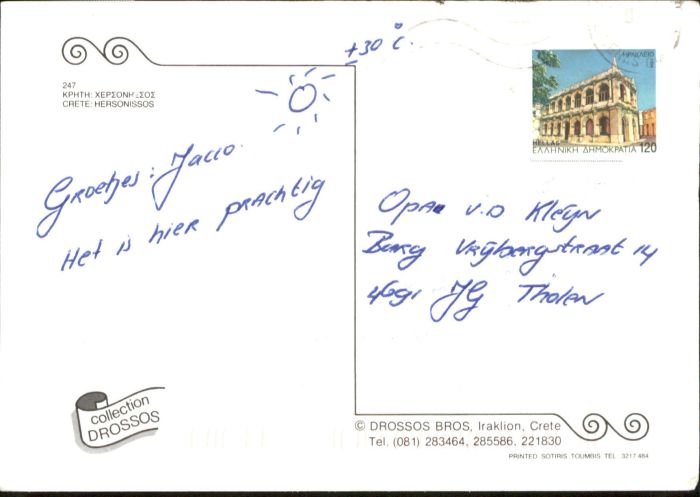 +30 °C.
247
ΚΡΗΤΗ: ΧΕΡΣΟΝΗΣΟΣ
CRETE: HERSONISSOS
ΗΡΑΚΛΕΙΟ
HELLAS
ΕΛΛΗΝΙΚΗ ΔΗΜΟΚΡΑΤΙΑ 120
Groetjes: Jacco
Het is hier prachtig
Opa v.d Kleyn
Burg Vrijbergstraat 14
4691 JG Tholen
collection
DROSSOS
© DROSSOS BROS, Iraklion, Crete
Tel. (081) 283464, 285586. 221830
PRINTED SOTIRIS TOUMBIS TEL. 3217 464